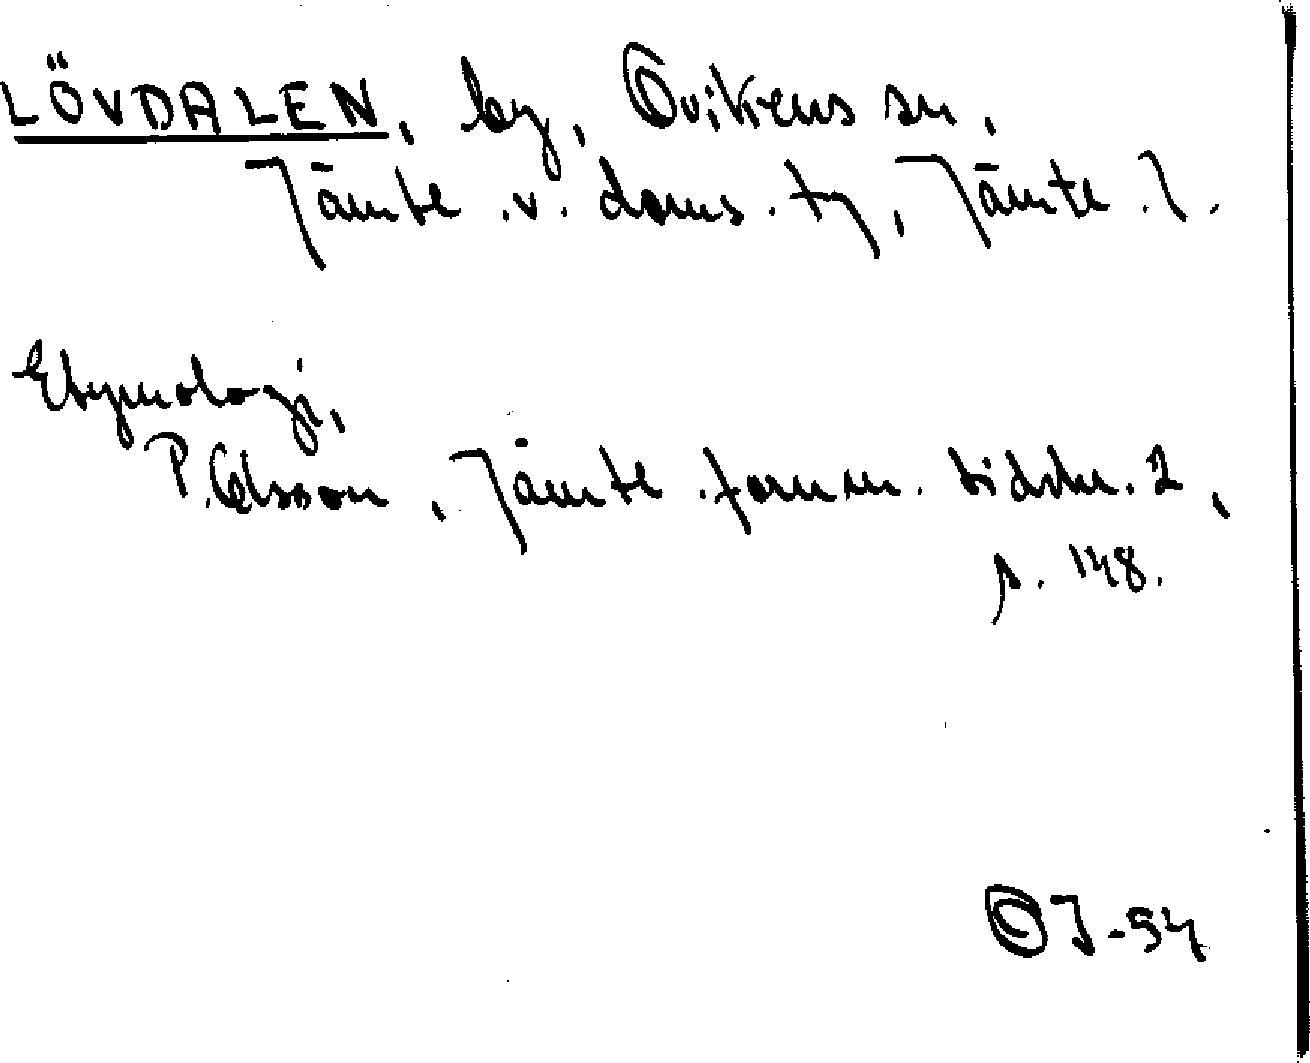 LÖVDALEN, by, Ovikens sn,
Jämtl. v. doms. tg, Jämtl. l.
Etymologi,
P. Olsson, Jämtl. fornm. tidskr. 2,
s. 148.
OJ-54